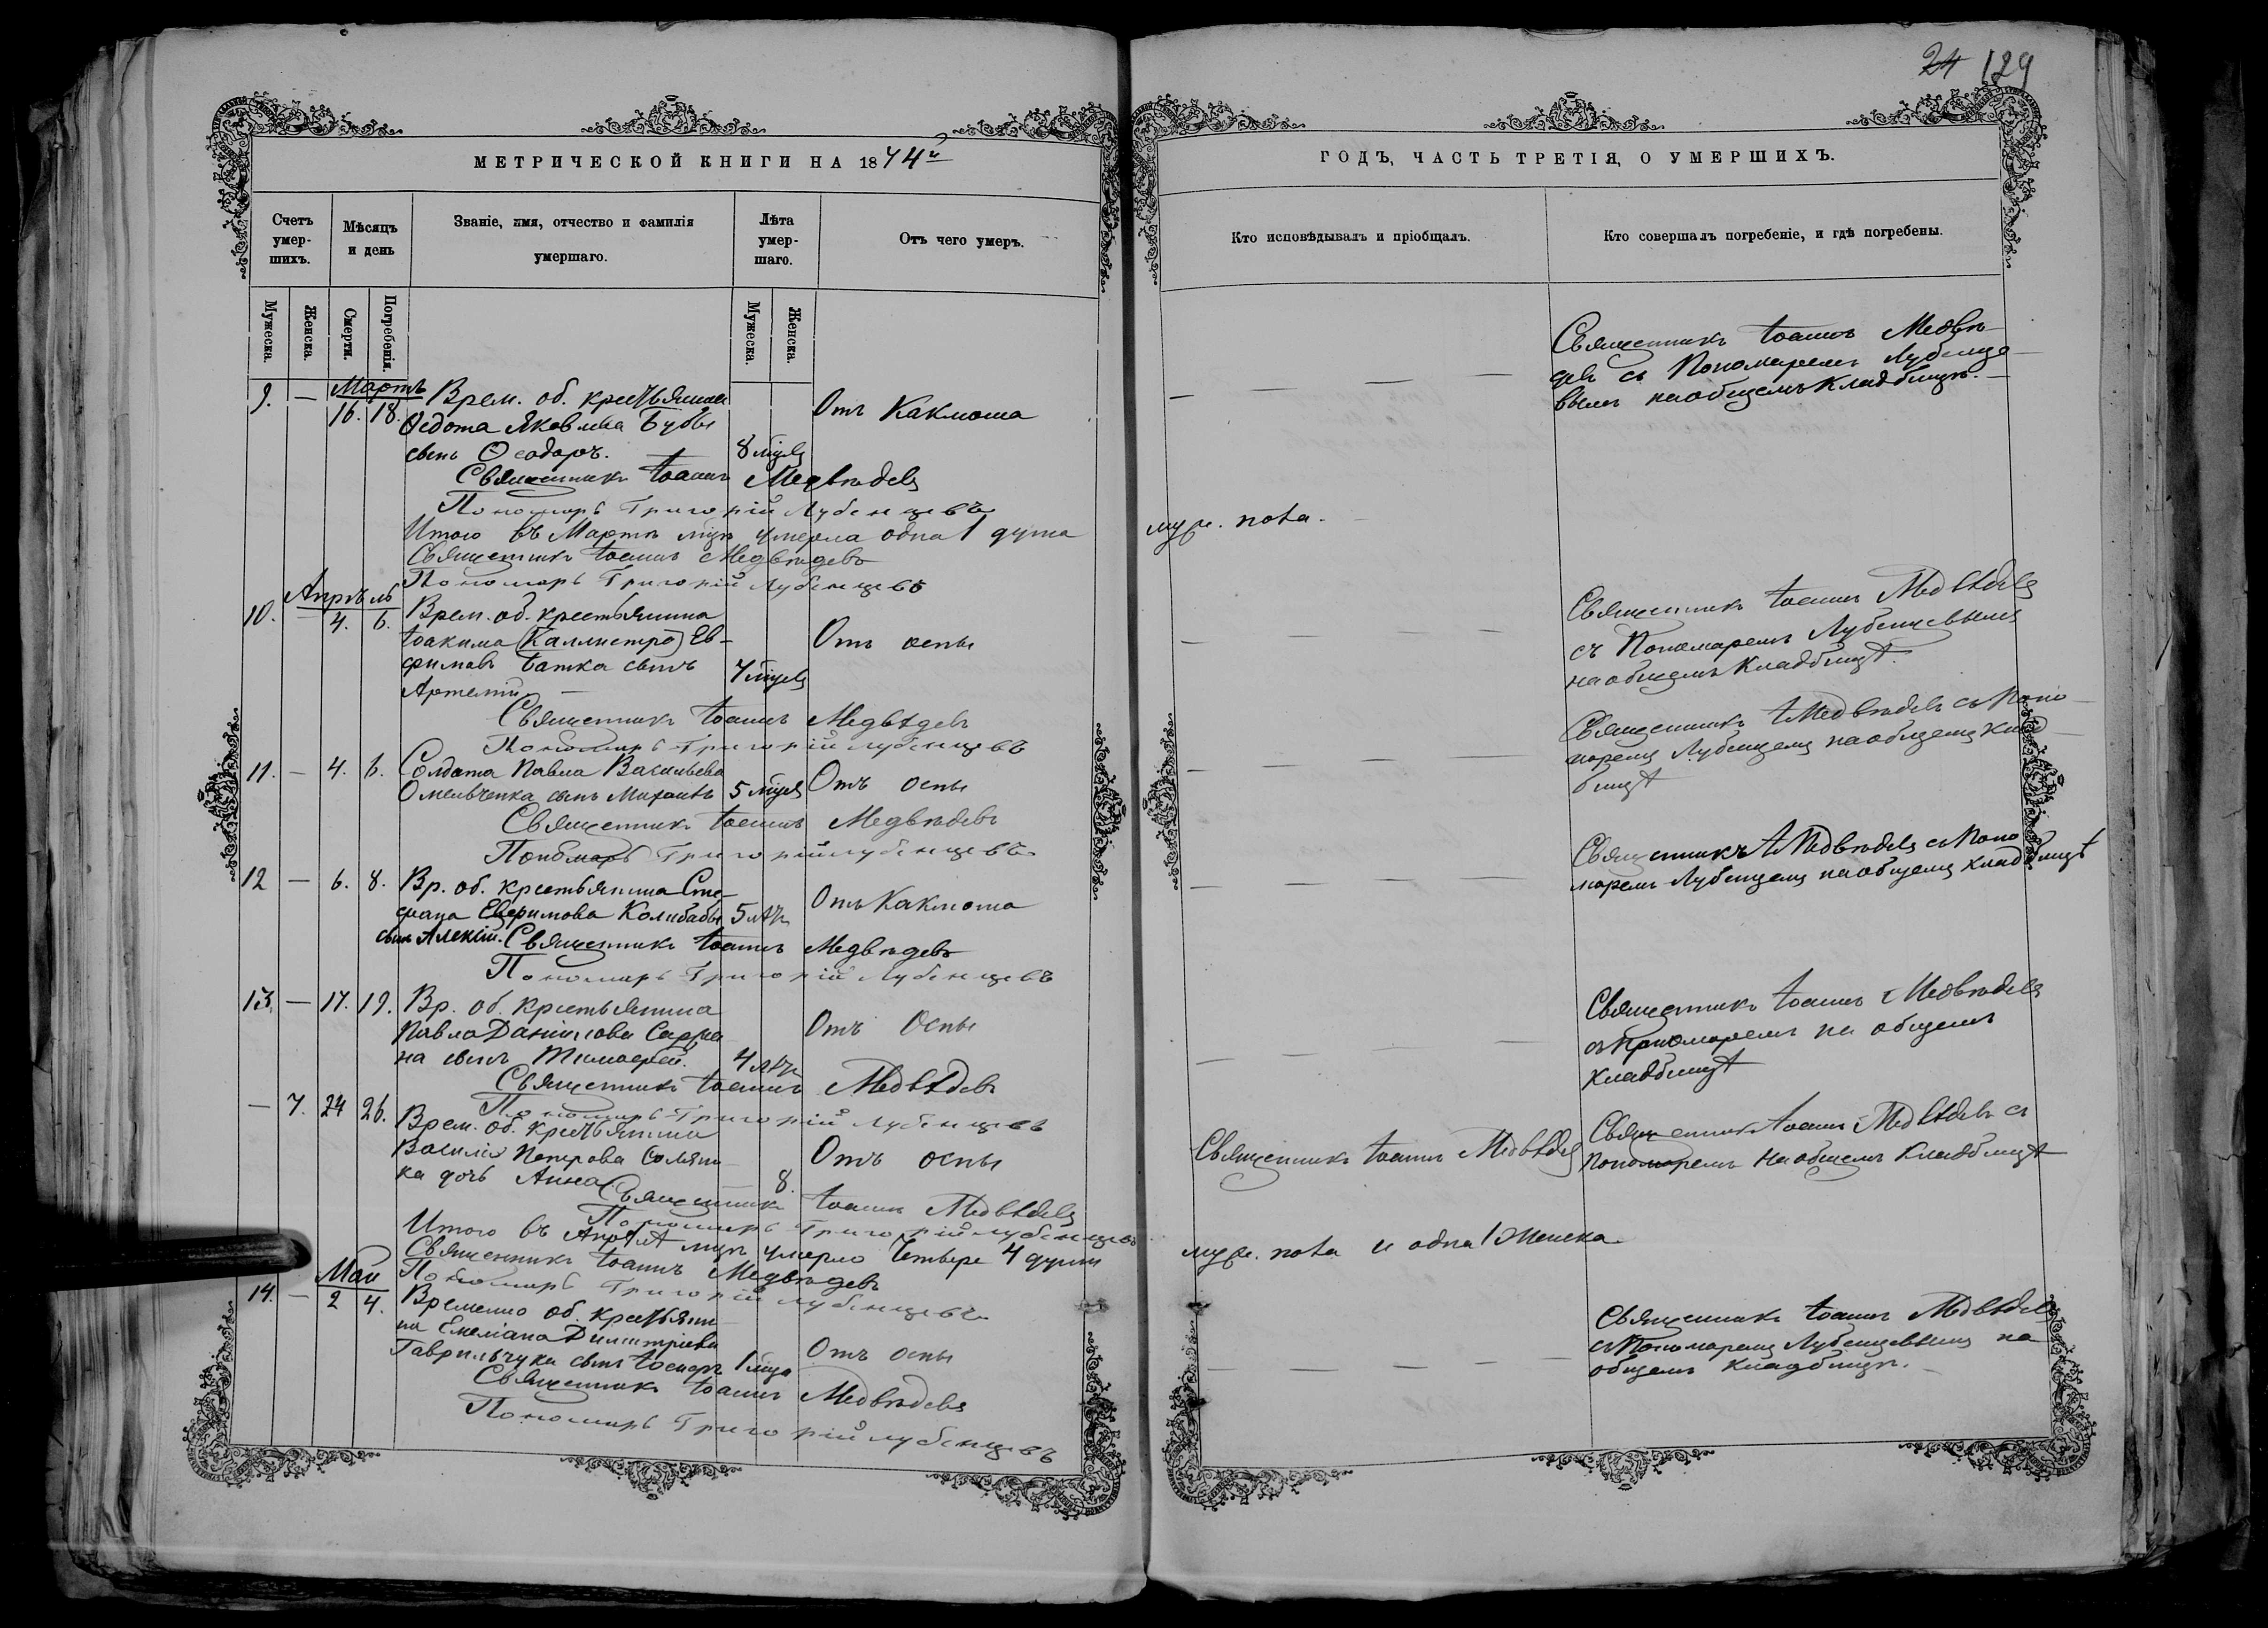 24 129
МЕТРИЧЕСКОЙ КНИГИ НА 1874й
Счетъ умер-шихъ.
Мѣсяцъ и день
Званіе, имя, отчество и фамилія умершаго.
Лѣта умер-шаго.
Отъ чего умеръ.
Мужеска.
Женска.
Смерти.
Погребенія.
Мужеска.
Женска.
Мартъ
9. — 16. 18. Врем. об. крестьянина
Ѳедота Яковлева Бубы
сынъ Ѳеодоръ. 8 мцев Отъ Каклюша
Священникъ Іоаннъ Медвѣдевъ
Пономарь Григорій Лубенцевъ
Итого въ Мартѣ мцѣ умерла одна 1 душа
Священникъ Іоаннъ Медвѣдевъ
Пономарь Григорій Лубенцевъ
Апрѣль
10. — 4. 6. Врем. об. крестьянина
Іоакима (Каллистро) Ев-
фимовъ Батка сынъ 7 мцев Отъ оспы
Артемій. —
Священникъ Іоаннъ Медвѣдевъ
Пономарь Григорій Лубенцевъ
11. — 4. 6. Солдата Павла Васильева
Омельченка сынъ Михаилъ 5 мцев Отъ оспы
Священникъ Іоаннъ Медвѣдевъ
Пономарь Григорій Лубенцевъ
12 — 6. 8. Вр. об. крестьянина Сте-
фана Евфимова Колибабы 5 лѣтъ Отъ Каклюша
сынъ Алексій. Священникъ Іоаннъ Медвѣдевъ
Пономарь Григорій Лубенцевъ
13. — 17. 19. Вр. об. крестьянина
Павла Даніилова Сафро-
на сынъ Тимоѳей. 4 лѣтъ Отъ Оспы
Священникъ Іоаннъ Медвѣдевъ
Пономарь Григорій Лубенцевъ
— 7. 24 26. Врем. об. крестьянина
Василія Петрова Соляни-
ка дочь Анна 8. Отъ оспы
Священникъ Іоаннъ Медвѣдевъ
Пономарь Григорій Лубенцевъ
Итого въ Апрѣлѣ мцѣ умерло Четыре 4 души
Священникъ Іоаннъ Медвѣдевъ
Пономарь Григорій Лубенцевъ
Май
14. — 2 4. Временно об. крестьяни-
на Емеліана Димитріева
Гаврильчука сынъ Іосифъ 1 мца Отъ оспы
Священникъ Іоаннъ Медвѣдевъ
Пономарь Григорій Лубенцевъ
ГОДЪ, ЧАСТЬ ТРЕТІЯ, О УМЕРШИХЪ.
Кто исповѣдывалъ и пріобщалъ.
Кто совершалъ погребеніе, и гдѣ погребены.
Священникъ Іоаннъ Медвѣ-
девъ съ Пономаремъ Лубенце-
вымъ на общемъ Кладбищѣ.
муж. пола.
Священникъ Іоаннъ Медвѣдевъ
съ Пономаремъ Лубенцевымъ
на общемъ Кладбищѣ.
Священникъ І Медвѣдевъ съ Поно-
маремъ Лубенцемъ на общемъ Клад-
бищѣ
Священникъ І Медвѣдевъ съ Поно
маремъ Лубенцемъ на общемъ кладбищѣ
Священникъ Іоаннъ Медвѣдевъ
съ Пономаремъ на общемъ
Кладбищѣ
Священникъ Іоаннъ Медвѣдевъ
Священникъ Іоаннъ Медвѣдевъ съ
Пономаремъ На общемъ Кладбищѣ
муж. пола и одна 1 Женска.
Священникъ Іоаннъ Медвѣдевъ
съ Пономаремъ Лубенцевымъ на
общемъ Кладбищѣ.